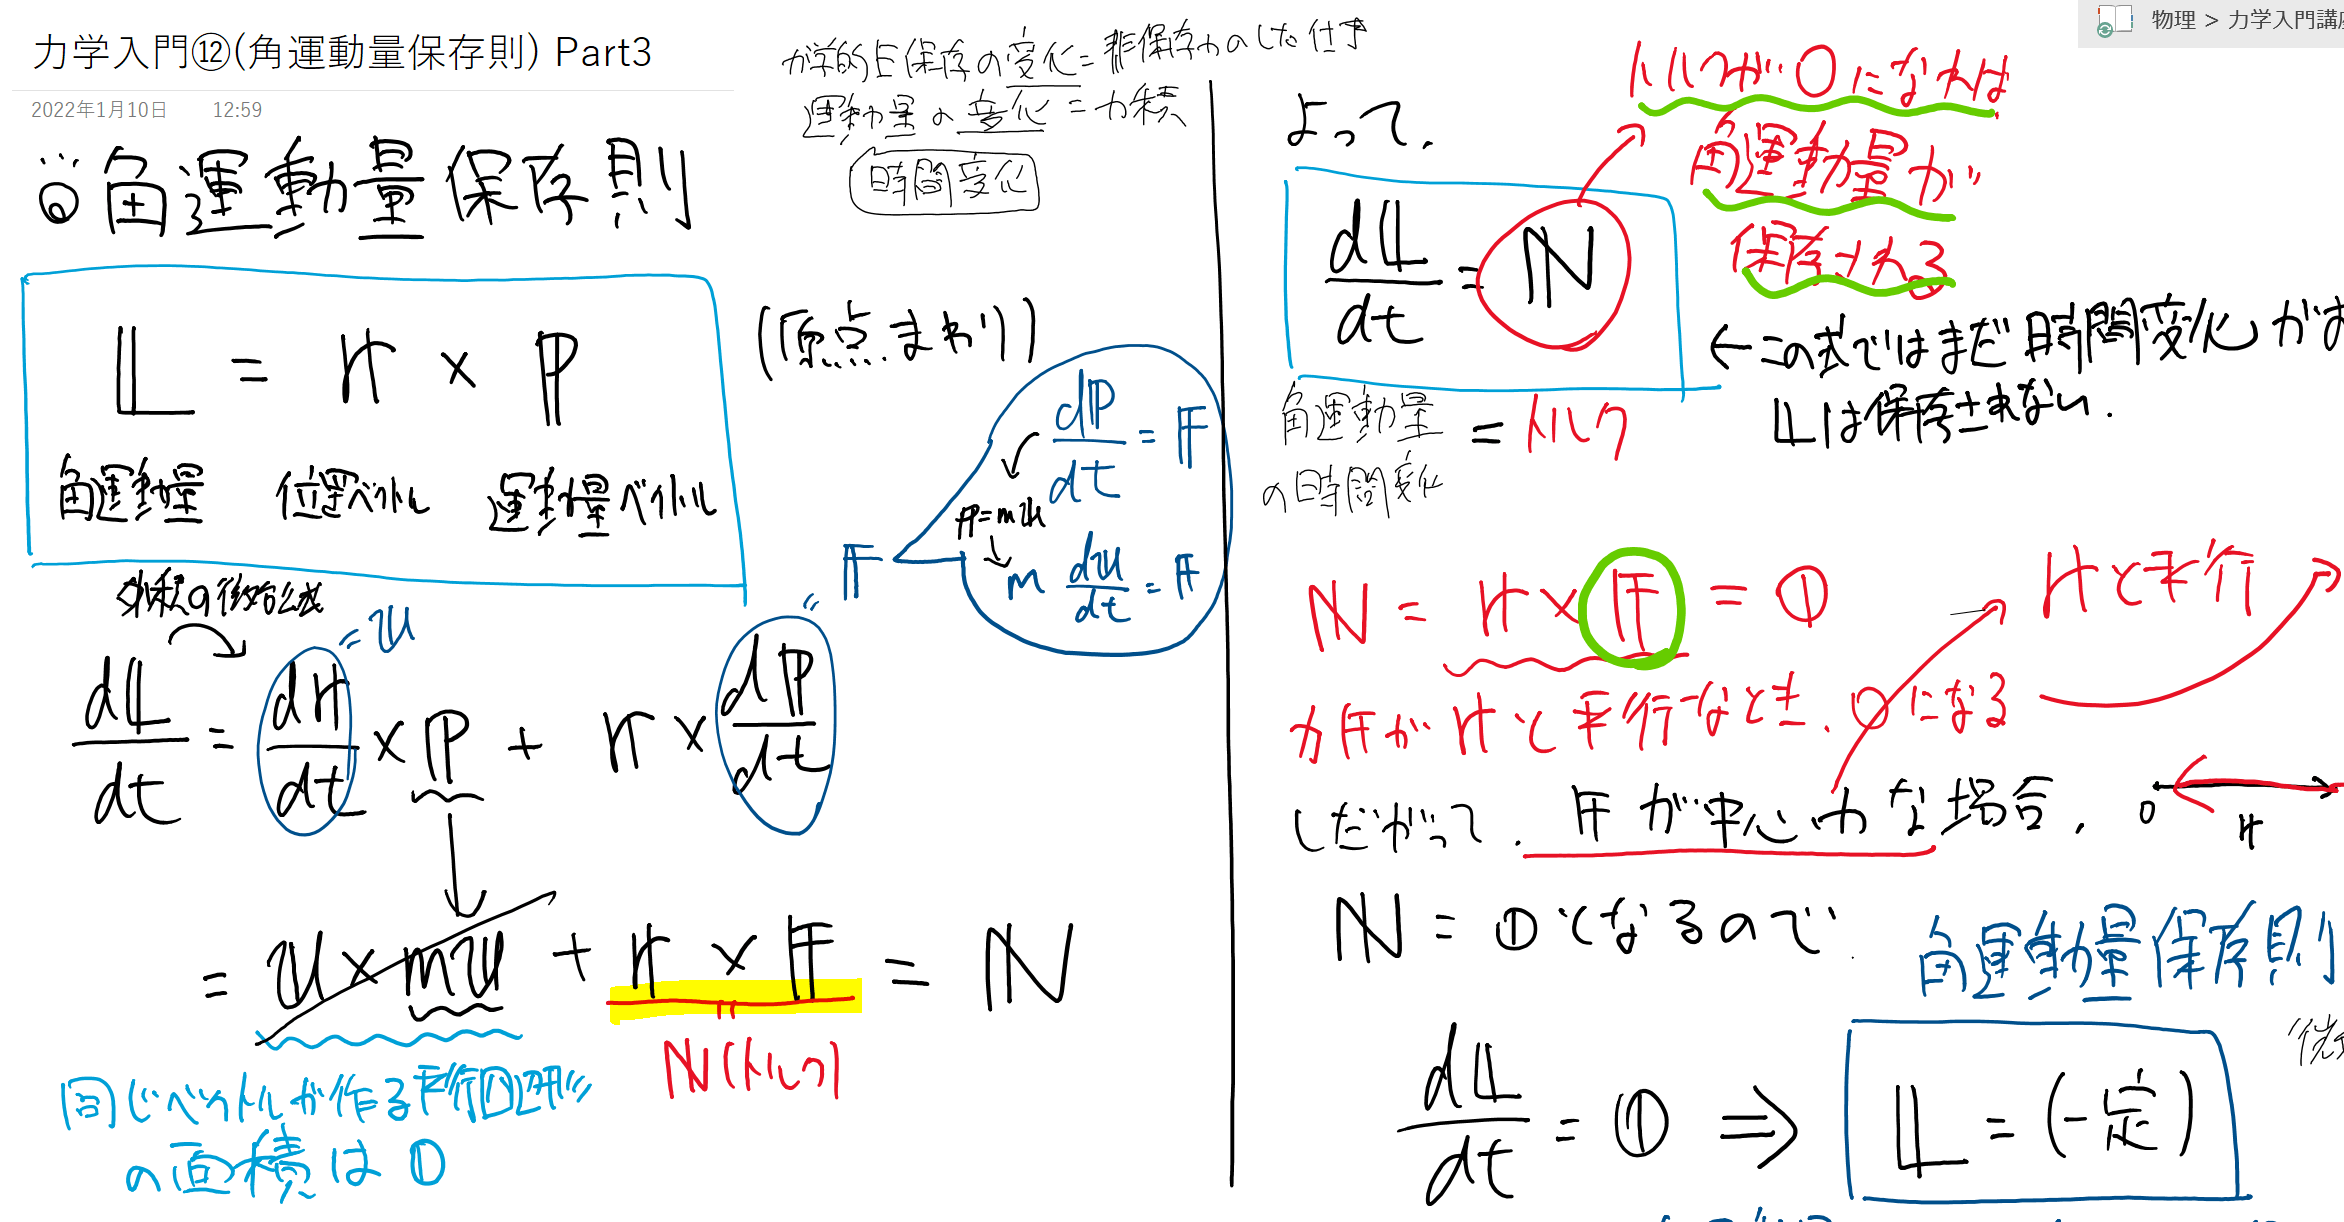 力学入門⑫(角運動量保存則) Part3
2022年1月10日 12:59
物理 > 力学入門講座
力学的E保存の変化=非保存力のした仕事
運動量の変化=力積
時間変化
◎角運動量保存則
L = r × p
角運動量 位置ベクトル 運動量ベクトル
(原点まわり)
dp/dt = F
p=mv
m dv/dt = F
F
外積の微分公式
= v
dL/dt = dr/dt × p + r × dp/dt
= v × mv + r × F = N
N(トルク)
同じベクトルが作る平行四辺形
の面積は0
よって、
dL/dt = N
角運動量 = トルク
の時間変化
トルクが0になれば
角運動量が
保存される
←この式ではまだ時間変化が
Lは保存されない.
N = r × F = 0
rと平行
力Fがrと平行なとき、0になる
しだがって、Fが中心力な場合、
0 r
N = 0となるので
角運動量保存則
dL/dt = 0 ⇒ L = (一定)